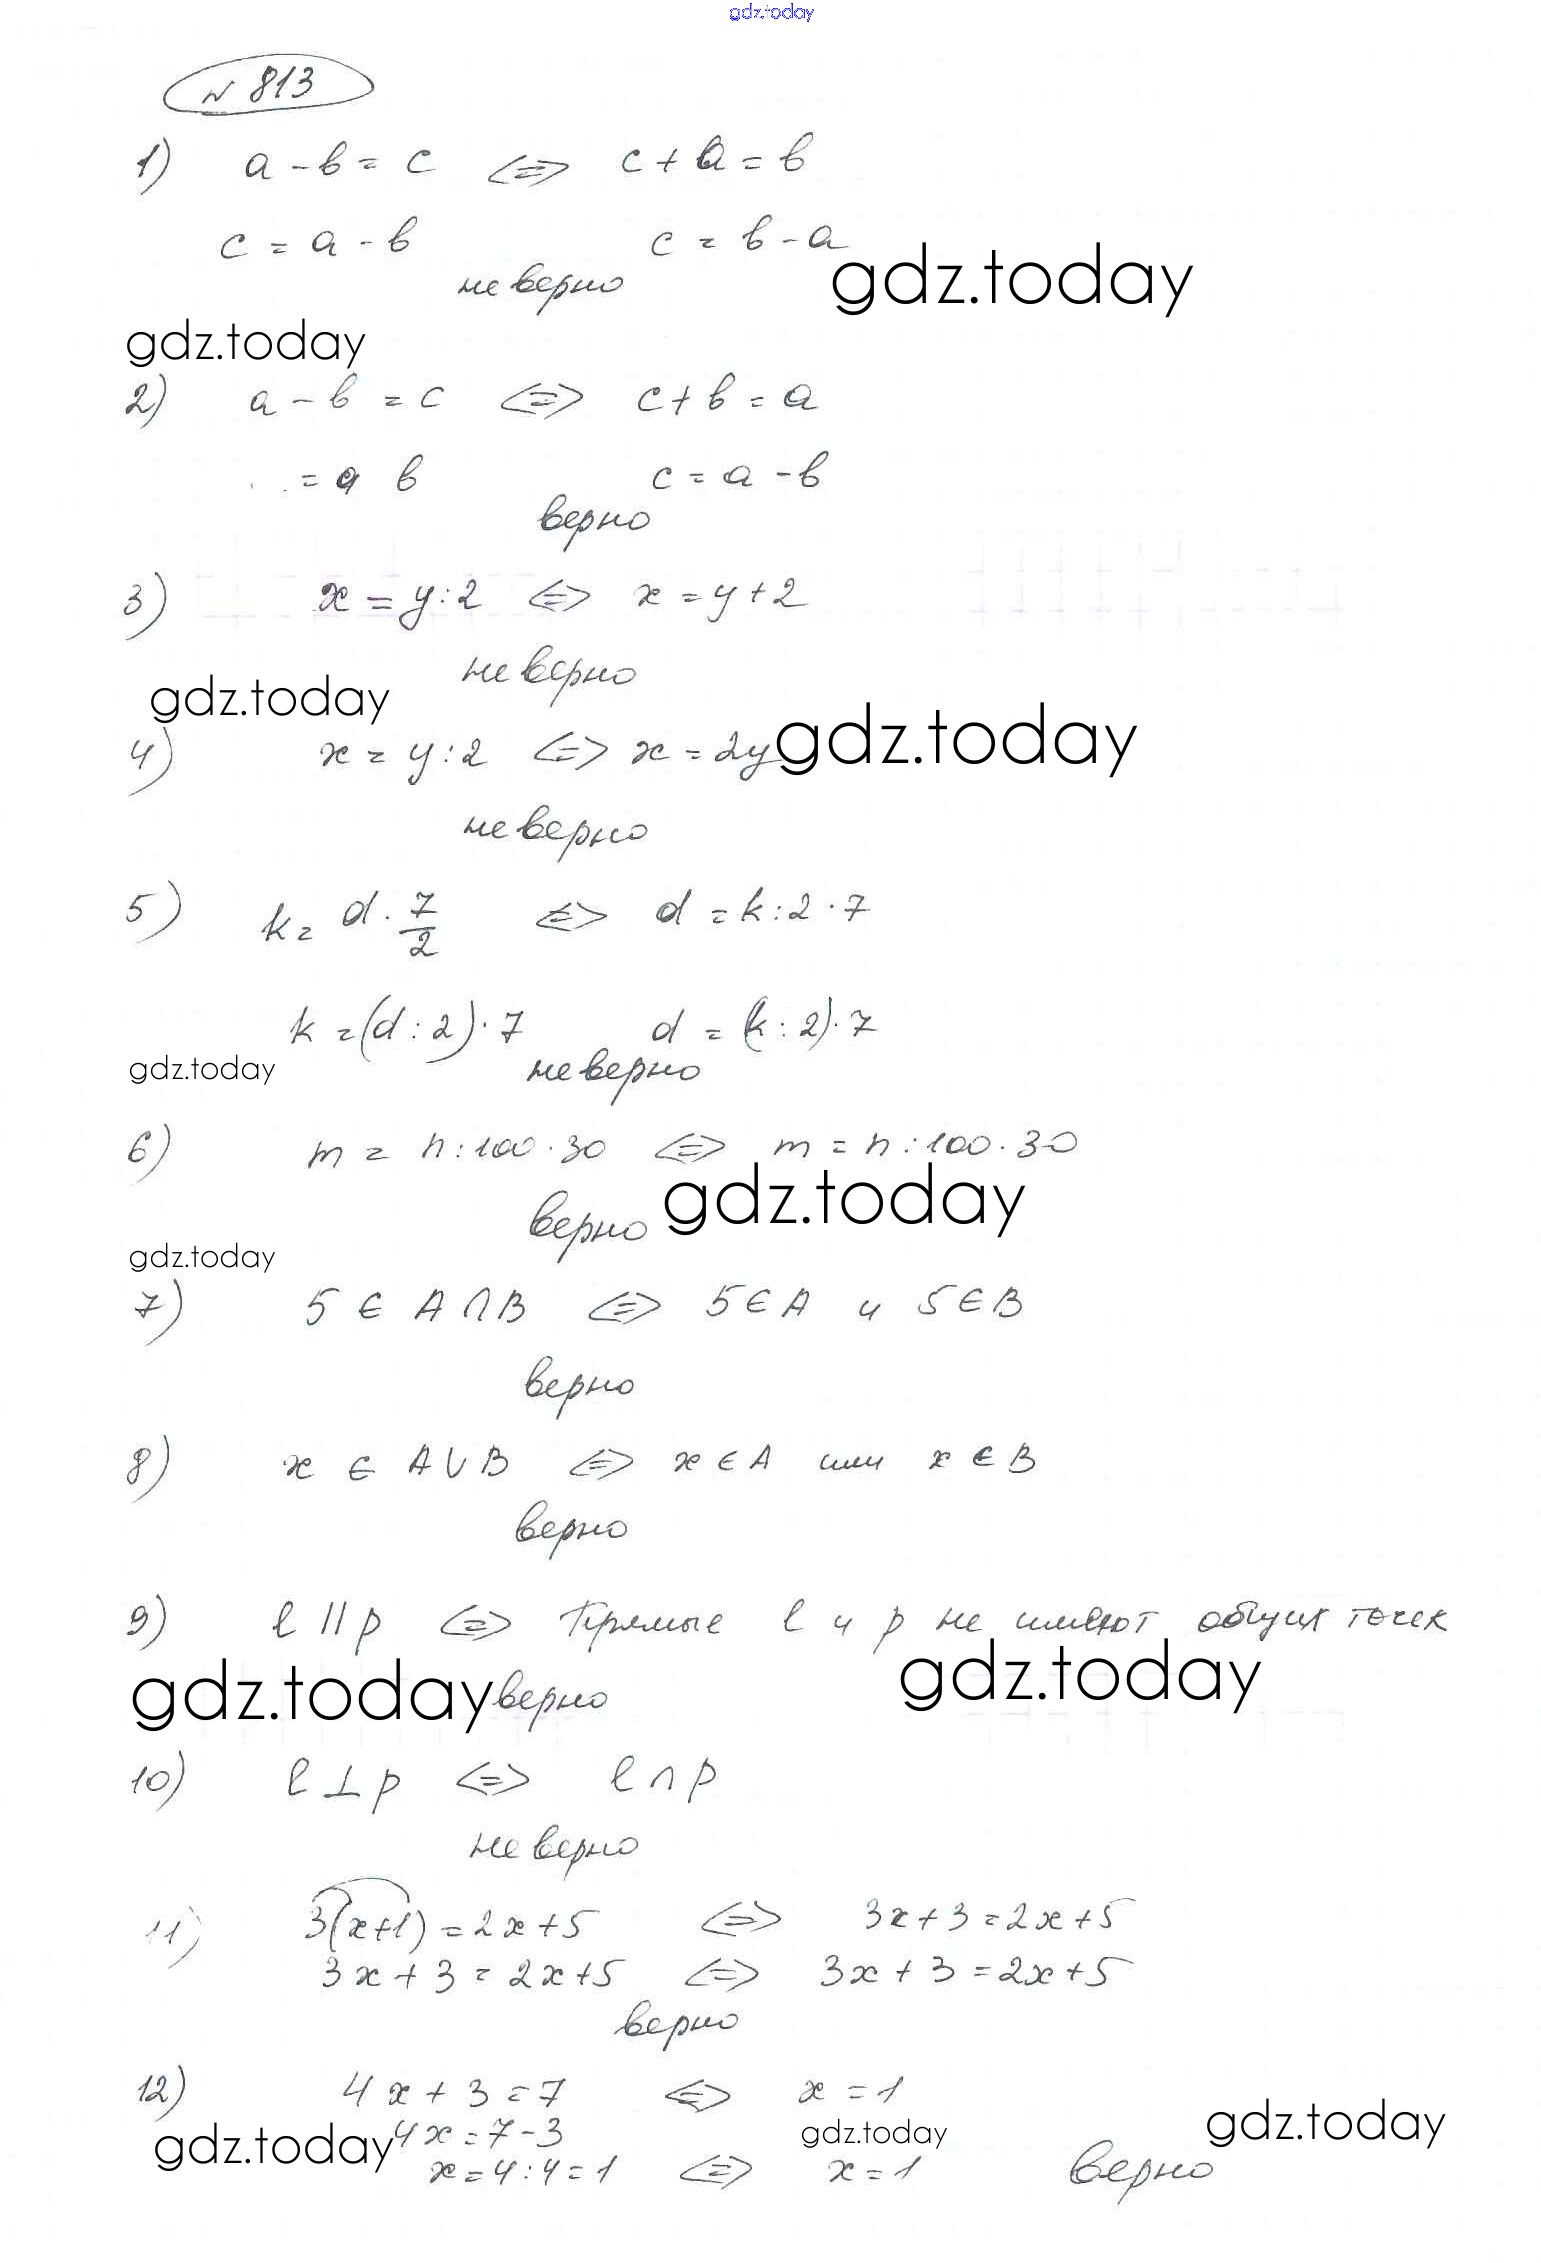 gdz.today
№ 813
1) a - b = c <=> c + a = b
c = a - b c = b - a
неверно gdz.today
gdz.today
2) a - b = c <=> c + b = a
= a b c = a - b
верно
3) x = y : 2 <=> x = y + 2
неверно
gdz.today gdz.today
4) x = y : 2 <=> x = 2y
неверно
5) k = d · 7/2 <=> d = k : 2 · 7
k = (d : 2) · 7 d = (k : 2) · 7
gdz.today неверно
6) m = n : 100 · 30 <=> m = n : 100 · 30
верно gdz.today
gdz.today
7) 5 ∈ A ∩ B <=> 5 ∈ A и 5 ∈ B
верно
8) x ∈ A ∪ B <=> x ∈ A или x ∈ B
верно
9) l || p <=> Прямые l и p не имеют общих точек
gdz.today верно gdz.today
10) l ⊥ p <=> l ∩ p
неверно
11) 3(x+1) = 2x + 5 <=> 3x + 3 = 2x + 5
3x + 3 = 2x + 5 <=> 3x + 3 = 2x + 5
верно
12) 4x + 3 = 7 <=> x = 1
gdz.today 4x = 7 - 3 gdz.today gdz.today
x = 4 : 4 = 1 <=> x = 1 верно